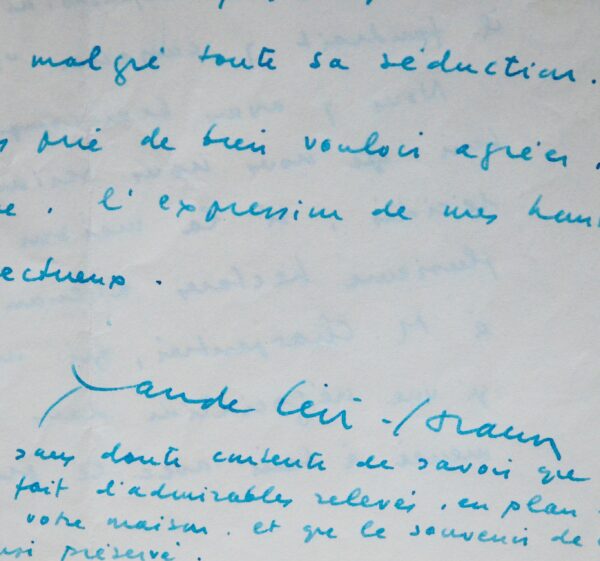 malgré toute sa séduction.
prié de bien vouloir agréer,
. l'expression de mes hom
ectueux.
Claude Lévi-Strauss
sans doute contente de savoir que
fait d'admirables relevés, en plan
votre maison. et que le souvenir de
nsi préservé.